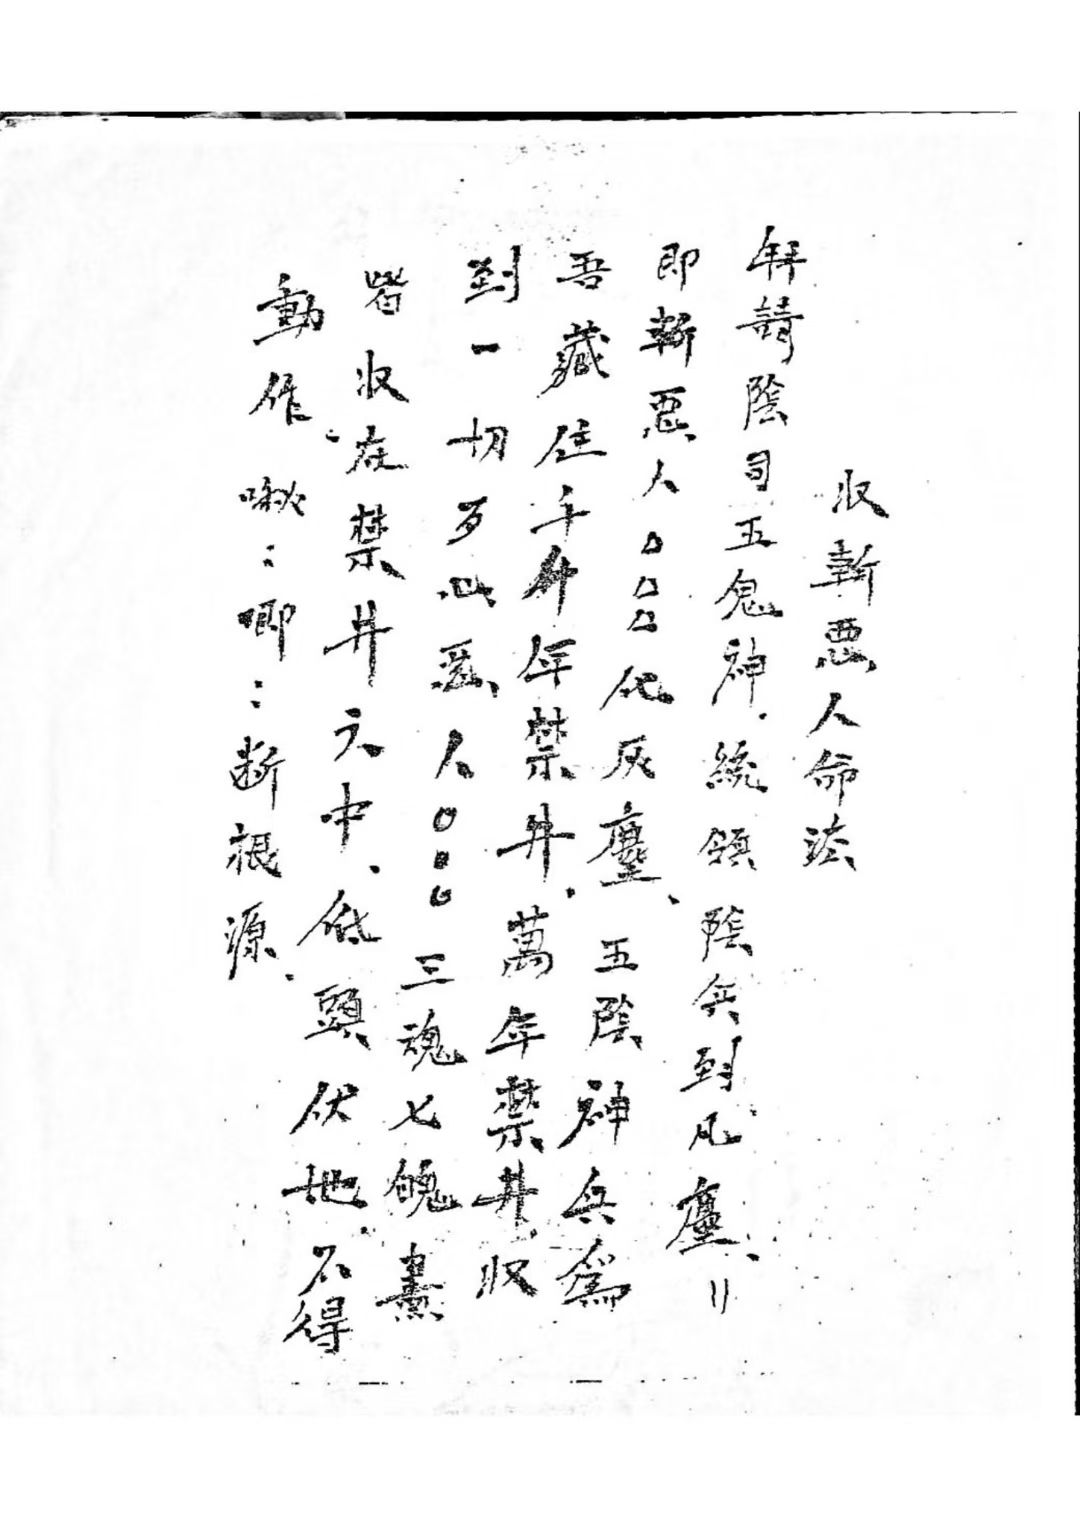 收斬惡人命法
拜請陰司五鬼神．統領陰兵到凡塵、〢
即斬惡人△△△化灰塵、五陰神兵為
吾藏住千年禁井．萬年禁井．收
到一切歹心惡人○○○三魂七魄盡
皆收在禁井之中、低頭伏地．不得
動作．啾：唧：断根源．